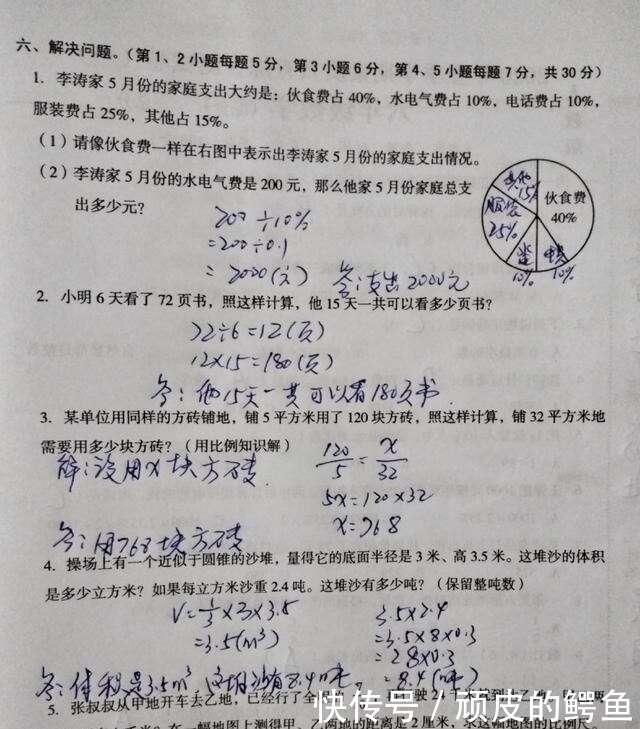 六、解决问题。（第1、2小题每题5分，第3小题6分，第4、5小题每题7分，共30分）
1. 李涛家5月份的家庭支出大约是：伙食费占40%，水电气费占10%，电话费占10%，
服装费占25%，其他占15%。
（1）请像伙食费一样在右图中表示出李涛家5月份的家庭支出情况。
（2）李涛家5月份的水电气费是200元，那么他家5月份家庭总支
出多少元？
其他
15%
伙食费
40%
服装
25%
10%
10%
200÷10%
=200÷0.1
=2000(元)
答：支出2000元
2. 小明6天看了72页书，照这样计算，他15天一共可以看多少页书？
72÷6=12(页)
12×15=180(页)
答：他15天一共可以看180页书.
3. 某单位用同样的方砖铺地，铺5平方米用了120块方砖，照这样计算，铺32平方米地
需要用多少块方砖？（用比例知识解）
解：设用x块方砖.
120/5=x/32
5x=120×32
x=768
答：用768块方砖
4. 操场上有一个近似于圆锥的沙堆，量得它的底面半径是3米、高3.5米。这堆沙的体积
是多少立方米？如果每立方米沙重2.4吨。这堆沙有多少吨？（保留整吨数）
V=1/3×3×3.5
=3.5(m³)
3.5×2.4
=3.5×8×0.3
=28×0.3
=8.4(吨)
答：体积是3.5m³，这堆沙有8.4吨.
5. 张叔叔从甲地开车去乙地，已经行了全
快传号／顽皮的鳄鱼
在一幅地图上测得甲、乙两地的距离是2厘米，求这幅地图的比例尺。